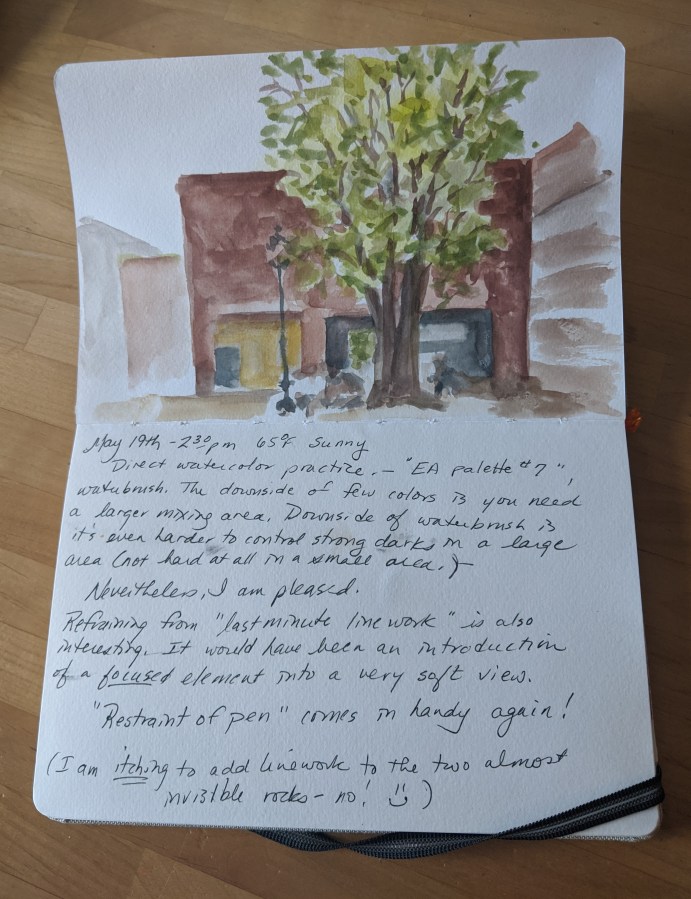 May 19th - 2:30 pm 65°F Sunny
Direct watercolor practice. - "EA palette #7",
waterbrush. The downside of few colors is you need
a larger mixing area. Downside of waterbrush is
it's even harder to control strong darks in a large
area (not hard at all in a small area.)
Nevertheless, I am pleased.
Refraining from "last minute line work" is also
interesting. It would have been an introduction
of a focused element into a very soft view.
"Restraint of pen" comes in handy again!
(I am itching to add linework to the two almost
invisible rocks - no! :) )